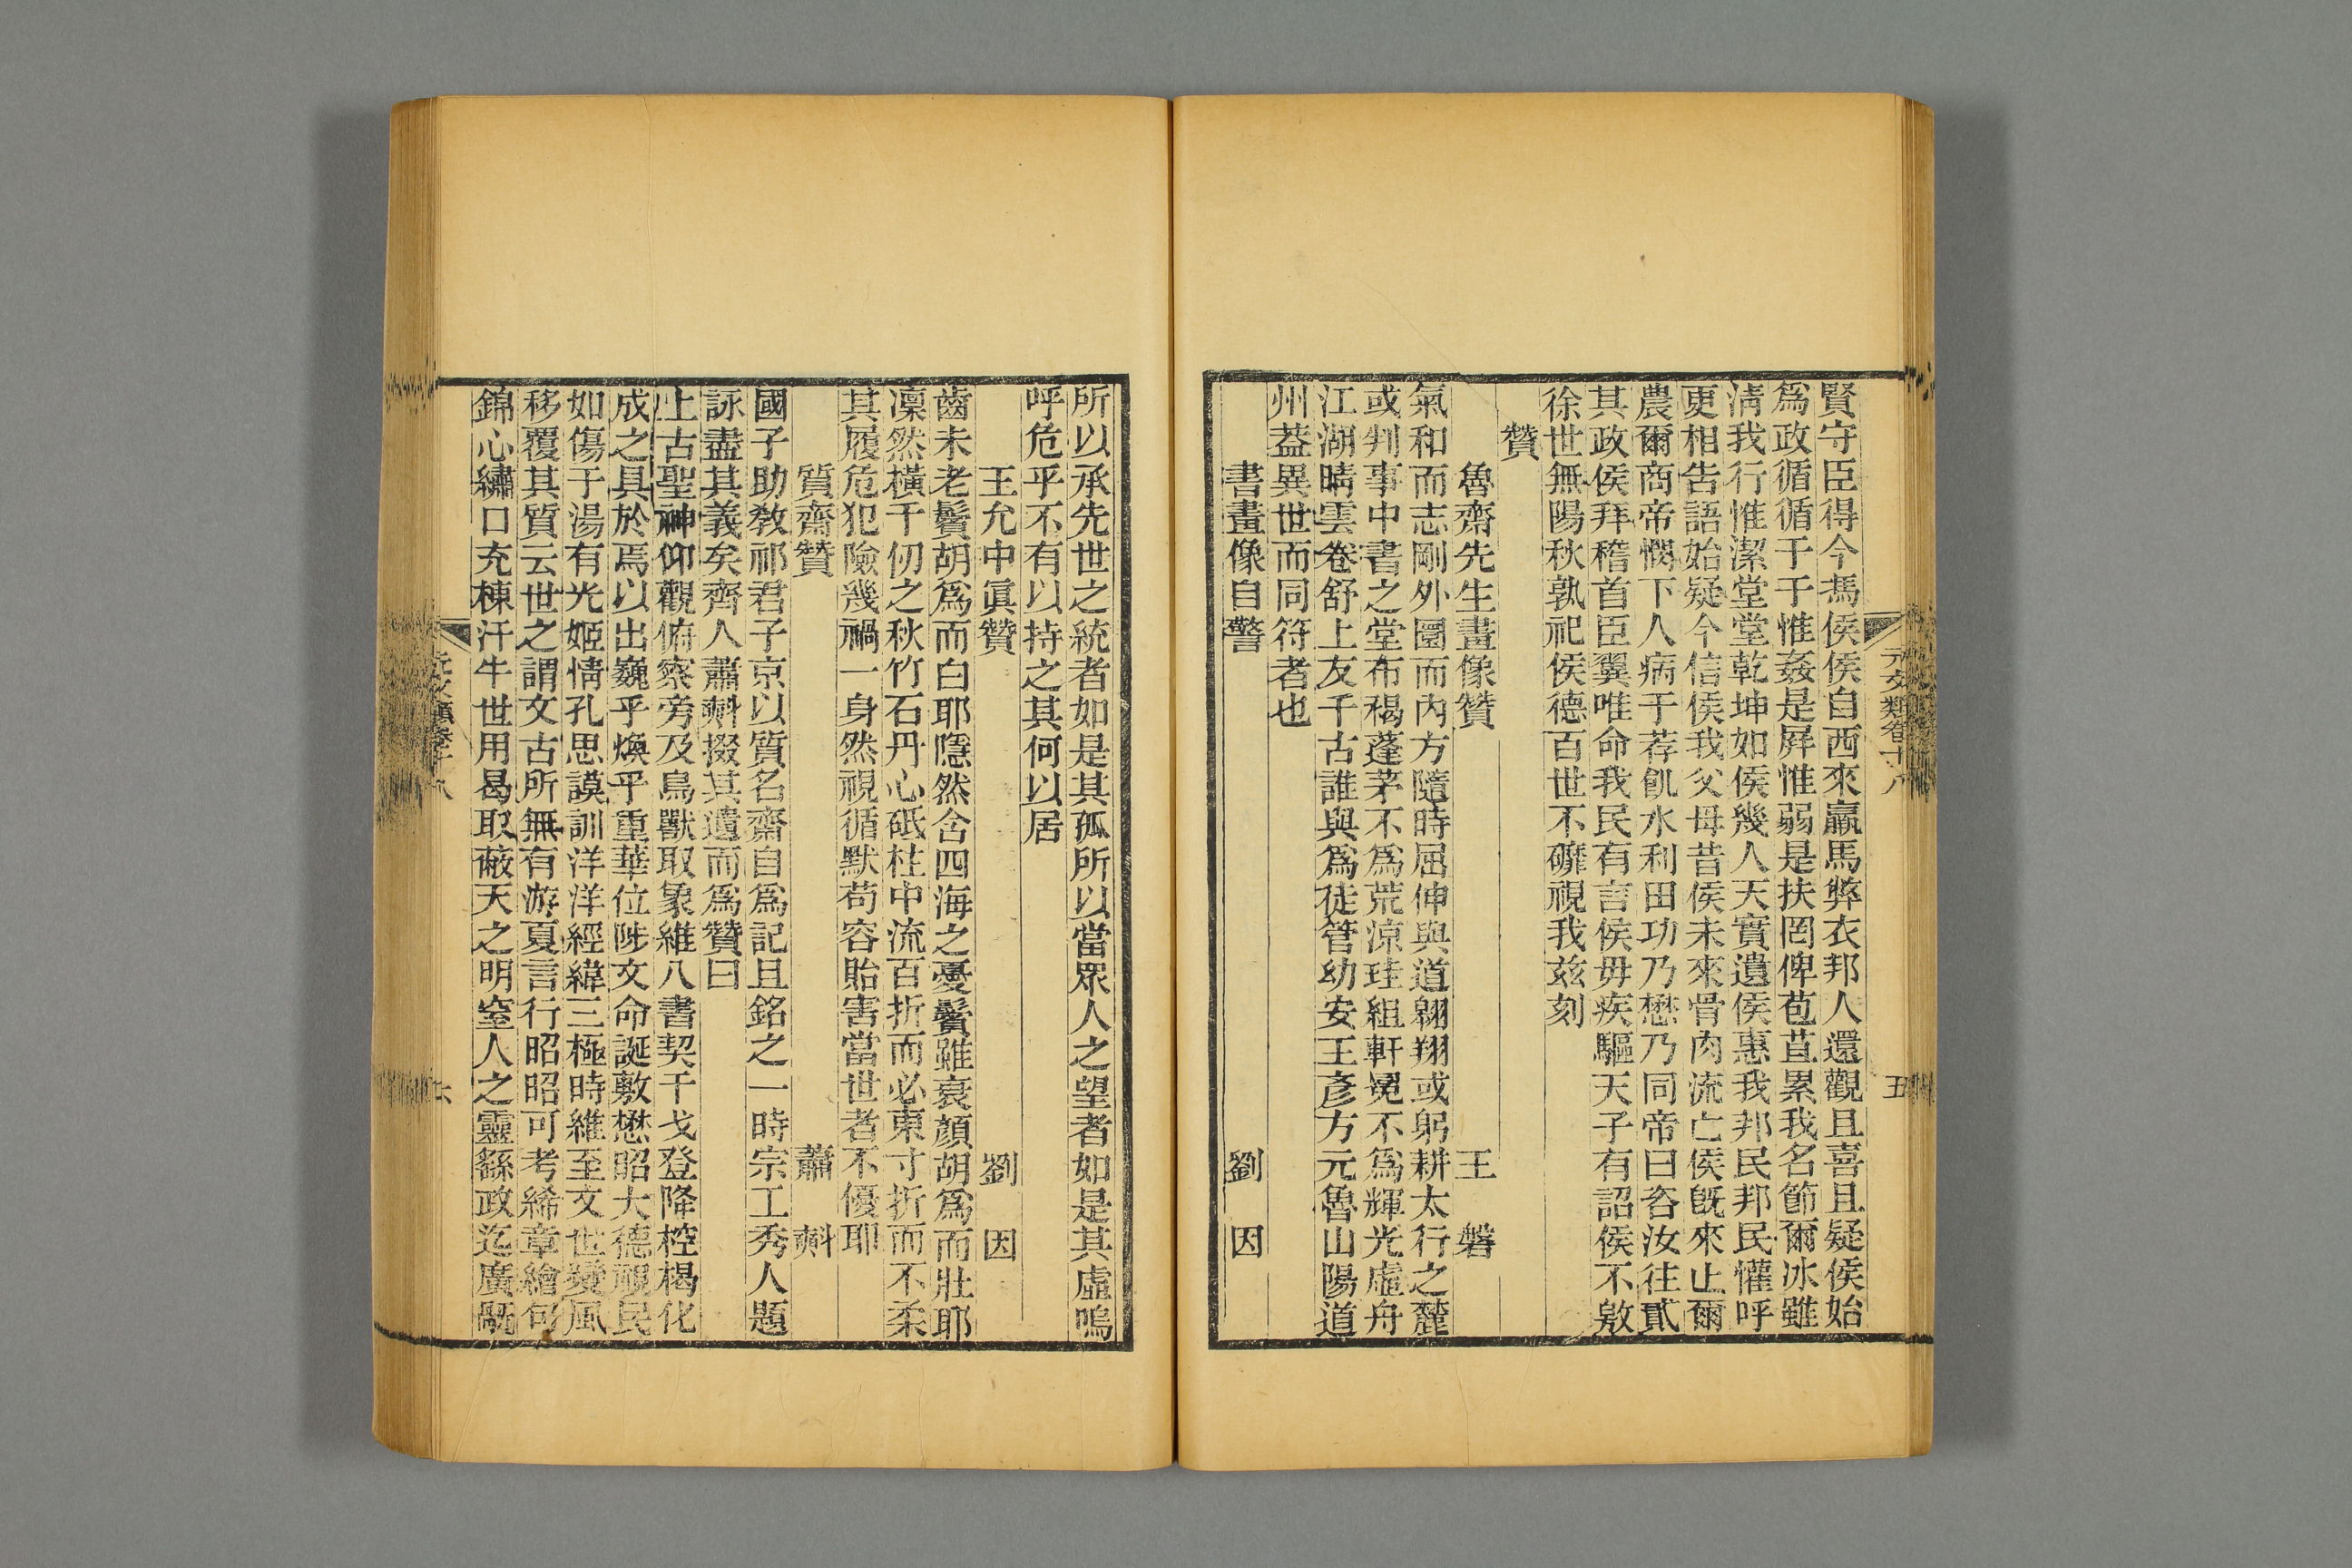 元文類卷十八
五
賢守臣得今馮侯侯自西來羸馬弊衣邦人還觀且喜且疑侯始
爲政循循于于惟姦是屏惟弱是扶罔俾苞苴累我名節爾冰雖
淸我行惟潔堂堂乾坤如侯幾人天實遺侯惠我邦民邦民懽呼
更相告語始疑今信侯我父母昔侯未來骨肉流亡侯旣來止爾
農爾商帝憫下人病于荐飢水利田功乃懋乃同帝曰咨汝往貳
其政侯拜稽首臣翼唯命我民有言侯毋疾驅天子有詔侯不敢
徐世無陽秋孰祀侯德百世不礲視我玆刻
贊
魯齋先生畫像贊 王磐
氣和而志剛外圜而內方隨時屈伸與道翱翔或躬耕太行之麓
或判事中書之堂布褐蓬茅不爲荒涼珪組軒冕不爲輝光虛舟
江湖晴雲卷舒上友千古誰與爲徒管幼安王彥方元魯山陽道
州葢異世而同符者也
書畫像自警 劉因
所以承先世之統者如是其孤所以當眾人之望者如是其虛嗚
呼危乎不有以持之其何以居
王允中眞贊 劉因
齒未老鬢胡爲而白耶隱然含四海之憂鬢雖衰顏胡爲而壯耶
凜然橫千仞之秋竹石丹心砥柱中流百折而必東寸折而不柔
其履危犯險幾禍一身然視循默苟容貽害當世者不優耶
質齋贊 蕭㪺
國子助敎祁君子京以質名齋自爲記且銘之一時宗工秀人題
詠盡其義矣齊人蕭㪺掇其遺而爲贊曰
上古聖神仰觀俯察旁及鳥獸取象維八書契干戈登降椌楬化
成之具於焉以出巍乎煥乎重華位陟文命誕敷懋昭大德視民
如傷于湯有光姬情孔思謨訓洋洋經緯三極時維至文世變風
移覆其質云世之謂文古所無有游夏言行昭昭可考絺章繪句
錦心繡口充棟汗牛世用曷取蔽天之明窒人之靈繇政迄廣翫
元文類卷十八
六